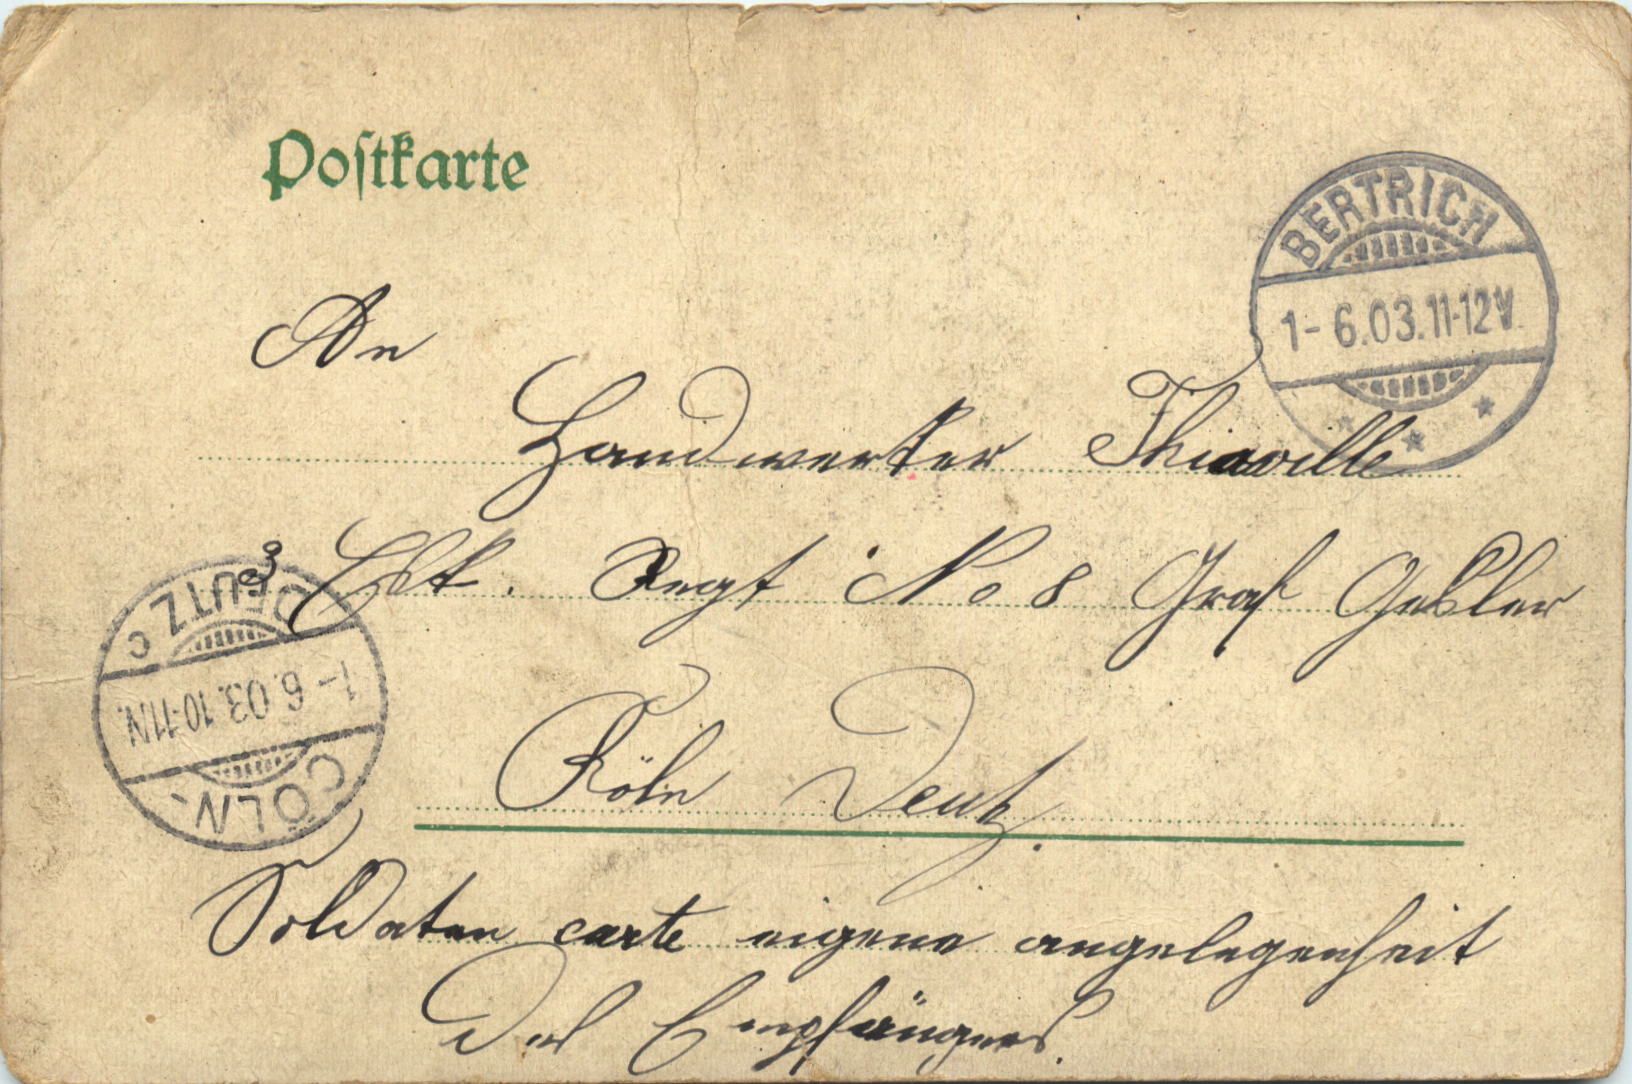 Postkarte
BERTRICH
1-6.03.11-12V.
An
Handwerker Thiaville
3 Esk. Regt No 8 Graf Geßler
Köln Deutz.
CÖLN-DEUTZ c
1-6.03.10-11N.
Soldaten carte eigene angelegenheit
des Empfängers.